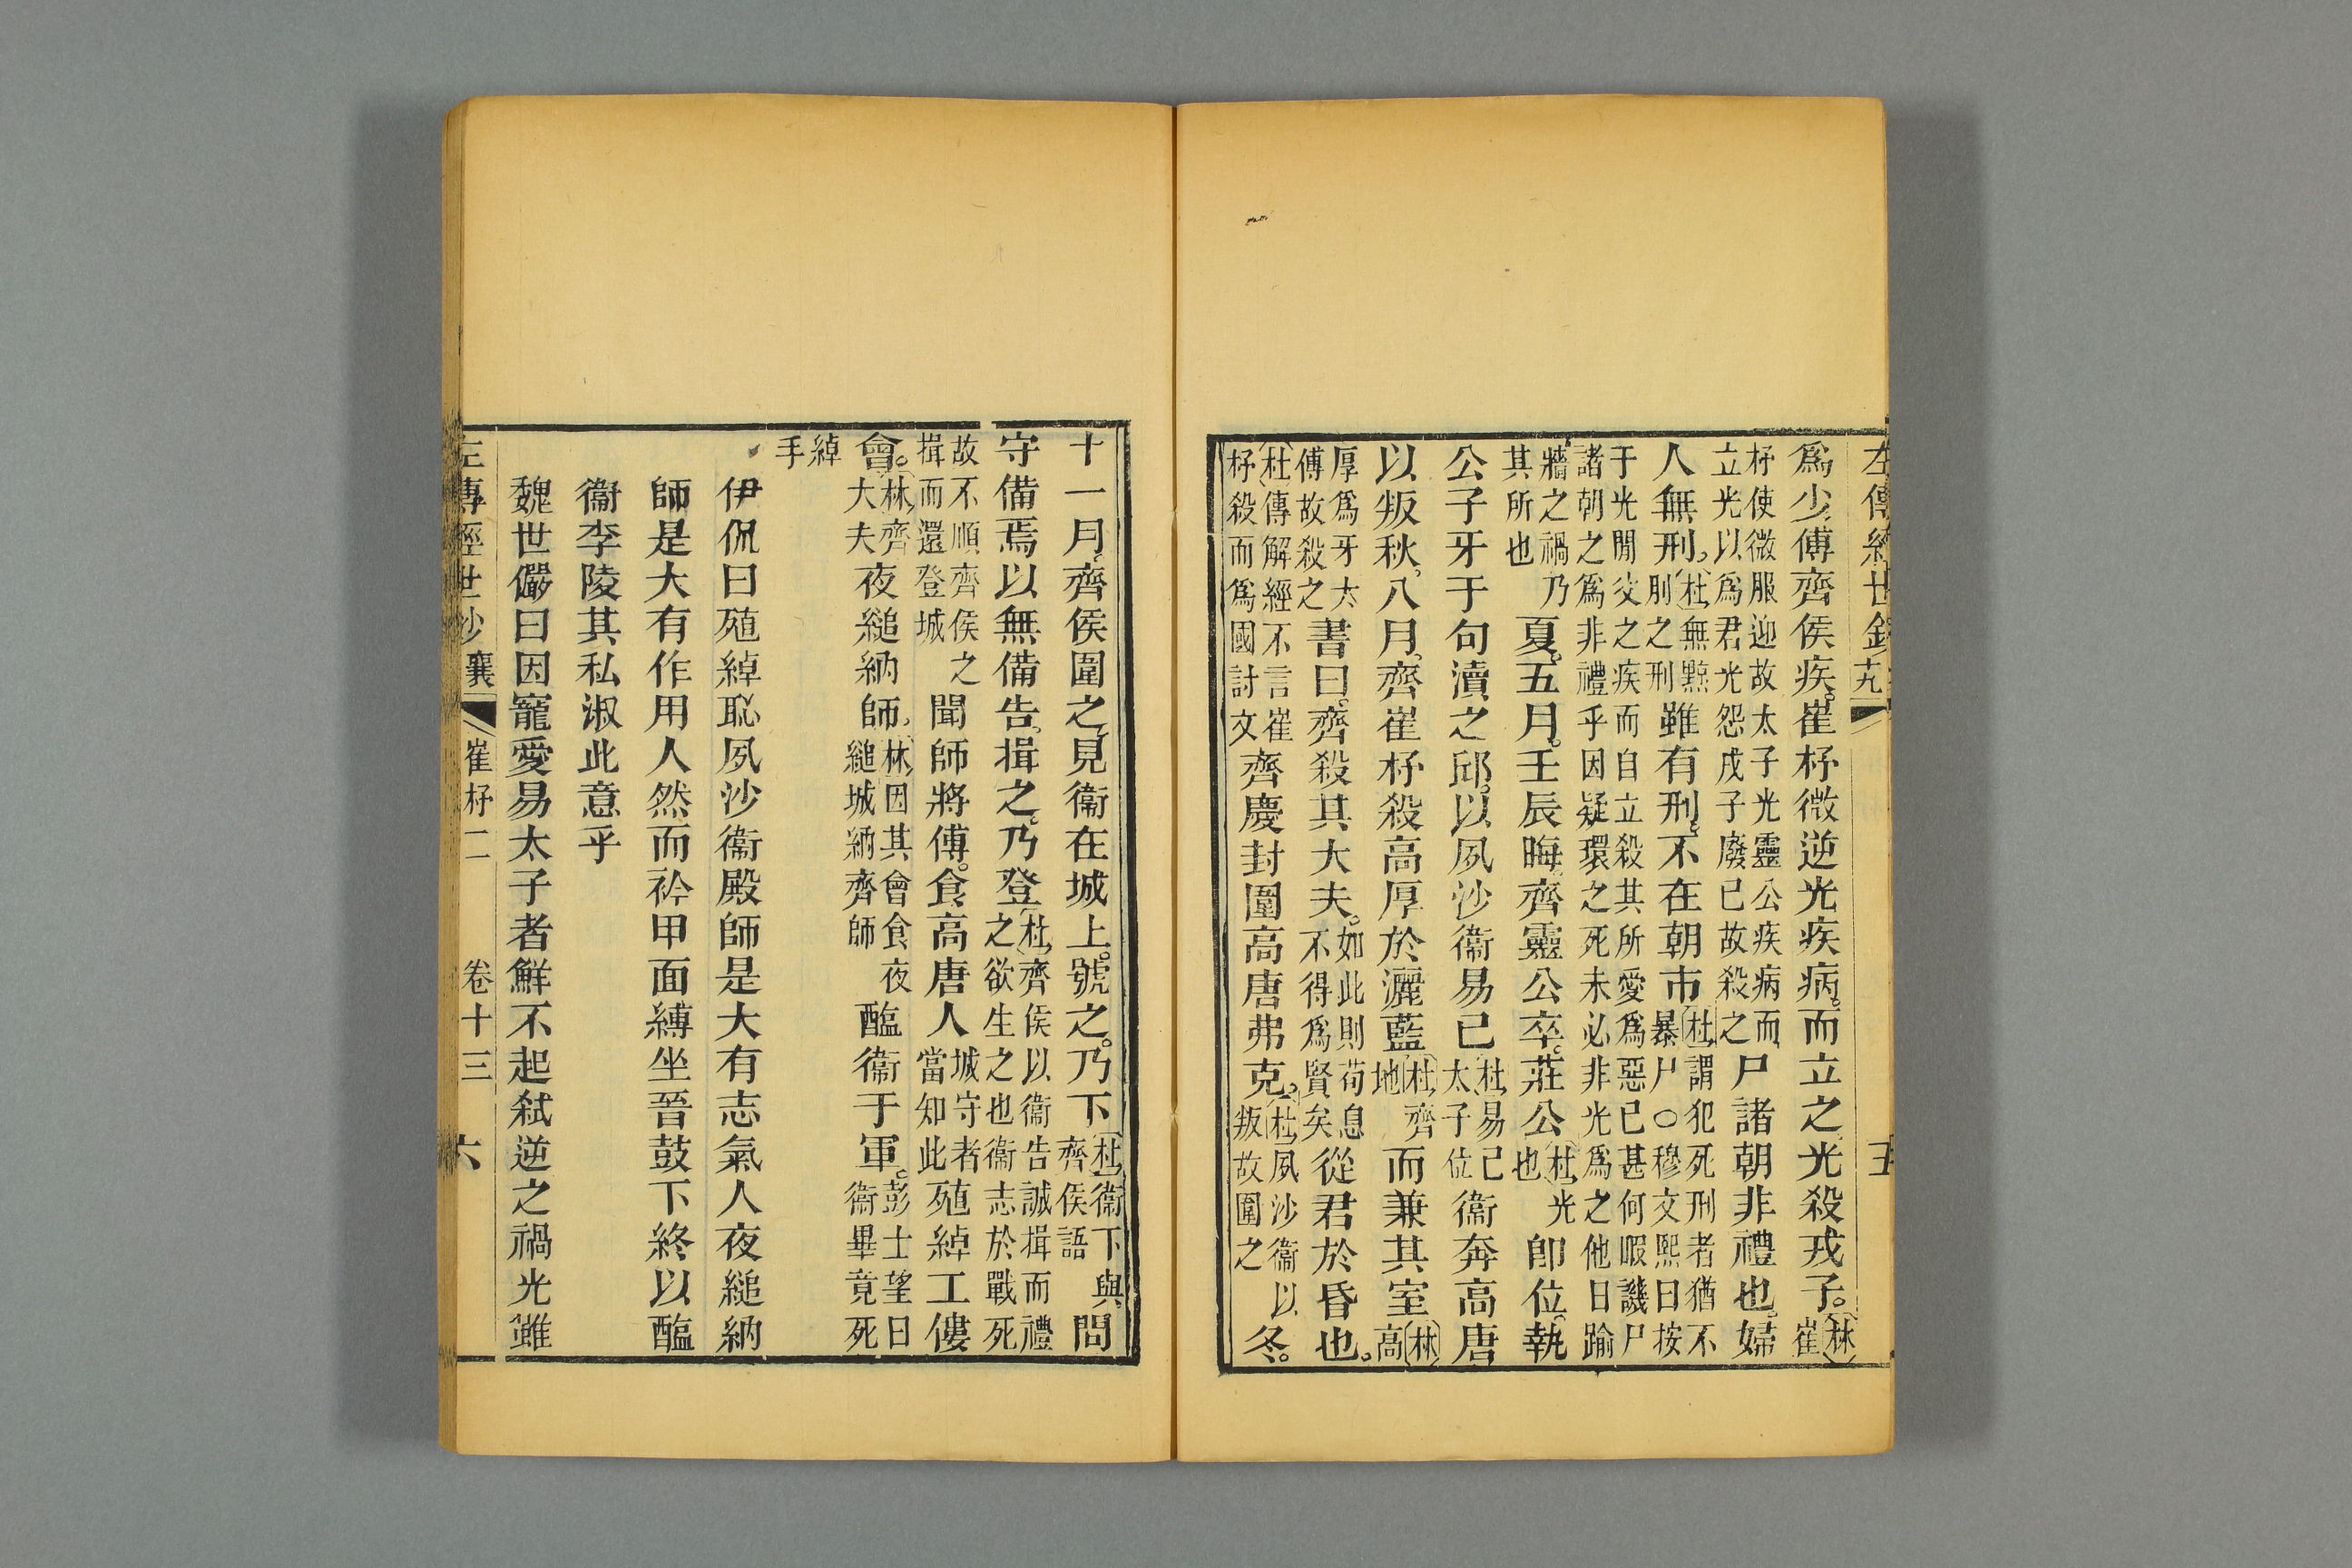 左傳經世鈔 十九 五
爲少傅齊侯疾崔杼微逆光疾病而立之光殺戎子林崔
杼使微服迎故太子光靈公疾病而
立光以爲君光怨戎子廢已故殺之
尸諸朝非禮也婦
人無刑杜無黥
刖之刑
雖有刑不在朝市杜謂犯死刑者猶不
暴尸○穆文熙曰按
于光閒廢之疾而自立殺其所愛爲惡已甚何暇譏尸
諸朝之爲非禮乎因疑環之死未必非光爲之他日踰
牆之禍乃
其所也
夏五月壬辰晦齊靈公卒莊公杜光
也
卽位執
公子牙于句瀆之邱以夙沙衞易已杜易已
太子位
衞奔高唐
以叛秋八月齊崔杼殺高厚於灑藍杜齊
地
而兼其室林高
厚爲牙太
傅故殺之
書曰齊殺其大夫如此則荀息
不得爲賢矣
從君於昏也
杜傳解經不言崔
杼殺而爲國討文
齊慶封圍高唐弗克杜夙沙衞以
叛故圍之
冬
十一月齊侯圍之見衞在城上號之乃下杜衞下與
齊侯語
問
守備焉以無備告揖之乃登杜齊侯以衞告誠揖而禮
之欲生之也衞志於戰死
故不順齊侯之
揖而還登城
聞師將傅食高唐人城守者
當知此
殖綽工僂
會林齊
大夫
夜縋納師林因其會食夜
縋城納齊師
醢衞于軍彭士望曰
衞畢竟死
綽
手
伊侃曰殖綽恥夙沙衞殿師是大有志氣人夜縋納
師是大有作用人然而衿甲面縛坐晉鼓下終以醢
衞李陵其私淑此意乎
魏世儼曰因寵愛易太子者鮮不起弒逆之禍光雖
左傳經世鈔 襄 崔杼二 卷十三 六